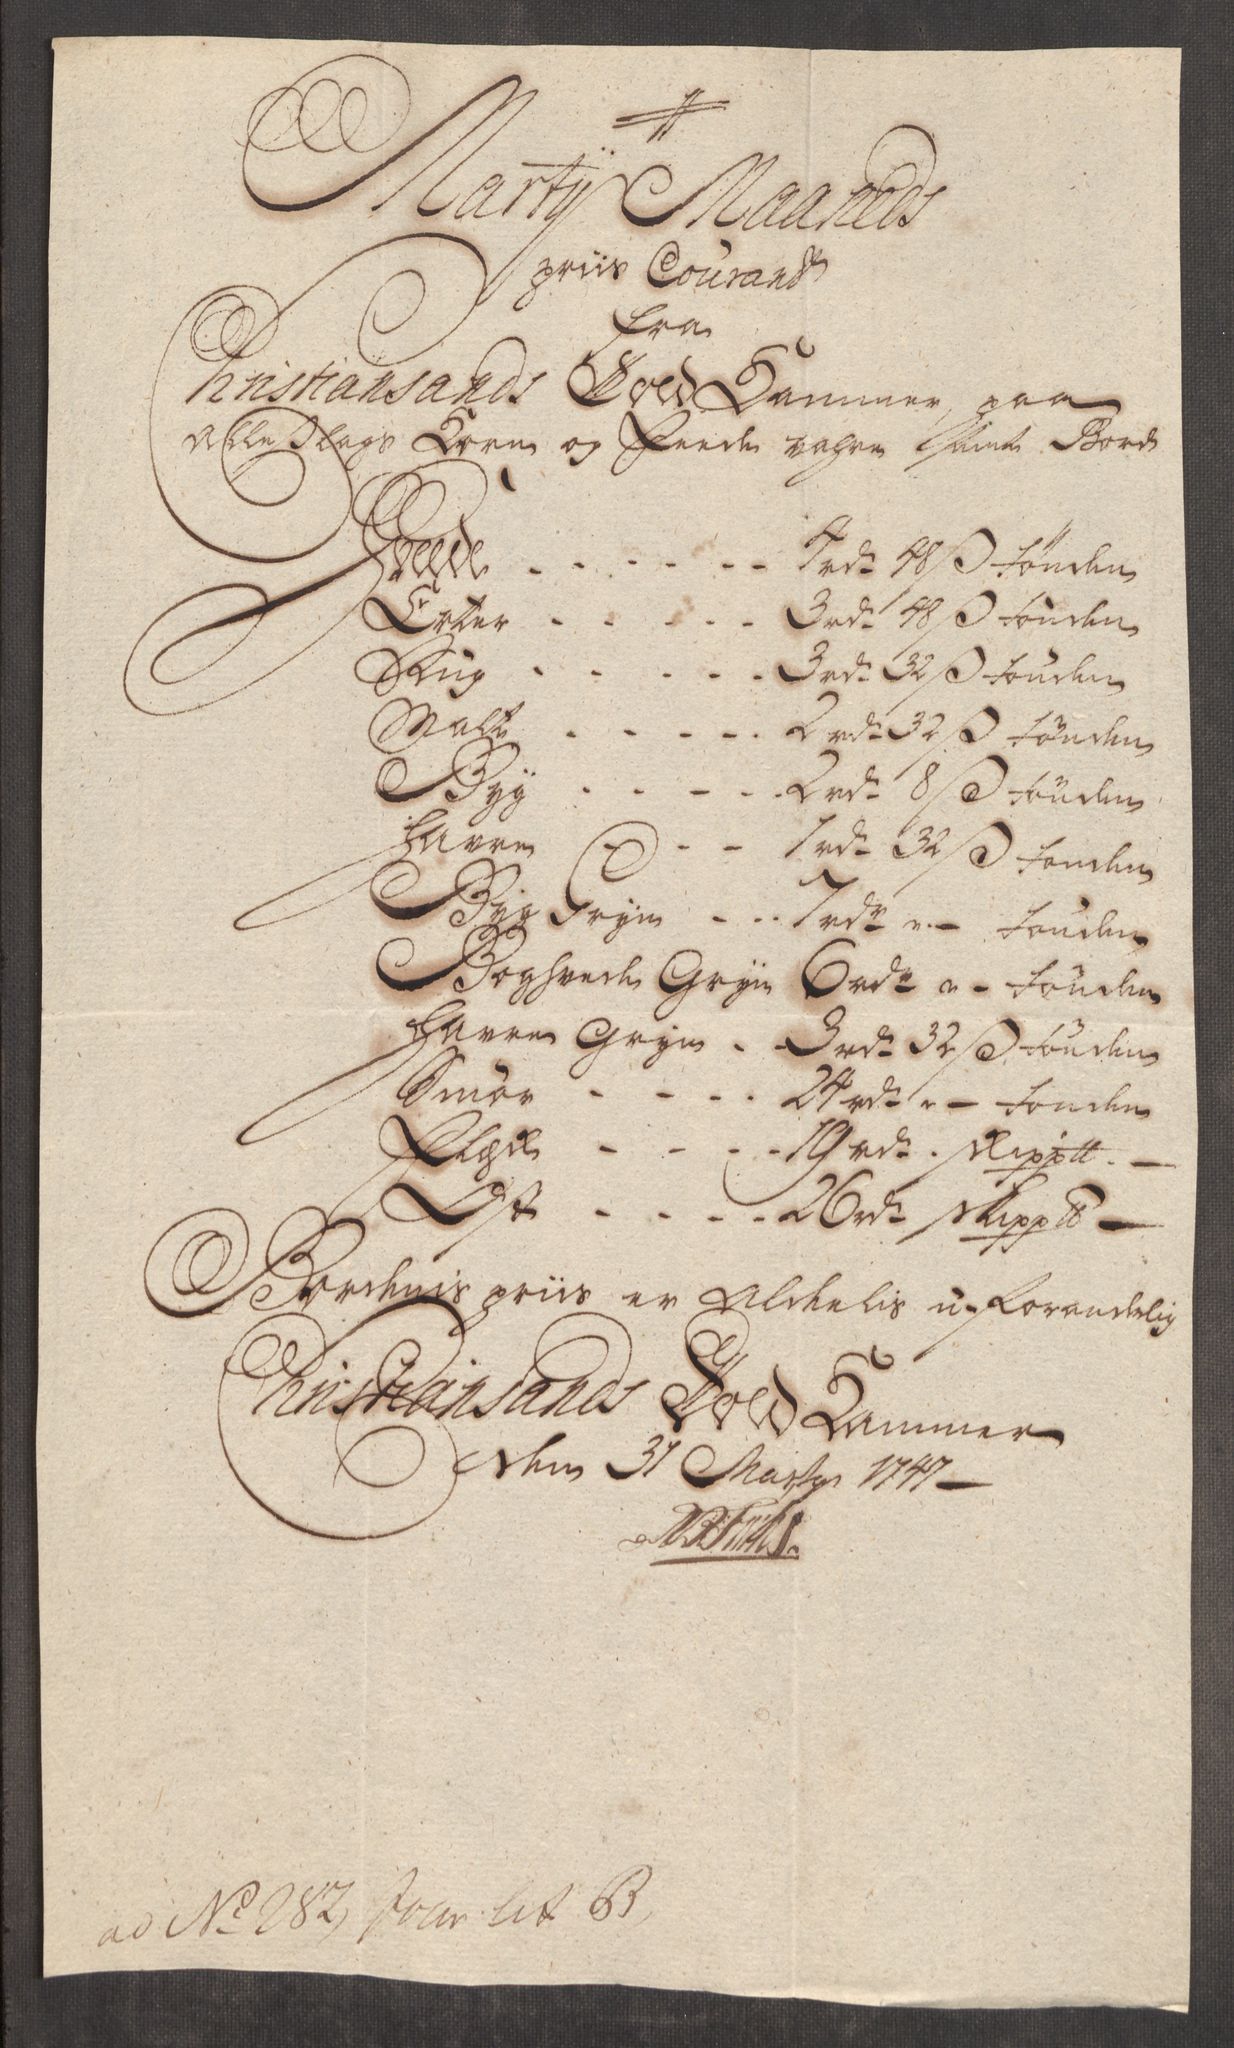 Martij Maaneds
priis Courandt
fra
Christiansands Told Kammer, paa
alle Slags Korn og Feede vahre samt Bord
Hvede - - - - - - 4rd 48 ß tönden
Erter - - - - - 3rd 48 ß tönden
Rug - - - - - 3rd 32 ß tönden
Malt - - - - - 2rd 32 ß tönden
Byg - - - - - 2rd 8 ß tönden
Havre - - - 1rd 32 ß tönden
Byg Gryn - - - 7rd " - tönden
Boghvede Gryn 6rd " - tönden
Havre Gryn - - 3rd 32 ß tönden
Smör - - - - 24rd " - tönden
Flesk - - - - 19rd - skippd. -
Ost - - - - 26rd skippd -
Bordenis priis er aldeelis u-foranderlig
Christiansands Told Kammer
den 31 Marty 1747 -
ad No 282, Jour lit B,